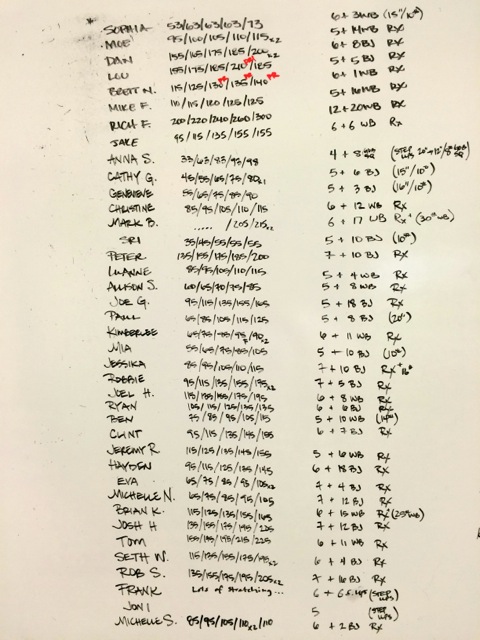 SOPHIA 53/63/63/63/73 6 + 3WB (15"/10#)
MOE 95/100/105/110/115x2 5 + 14WB Rx
DAN 155/165/175/185/200x2 6 + 8BJ Rx
LOU 155/175/185/210/185 PR 5 + 5BJ Rx
BRETT N. 115/125/130/135/140 PR PR PR 6 + 1WB Rx
MIKE F. 110/115/120/125/125 5 + 16WB Rx
RICH F. 200/220/240/260/300 12 + 20WB Rx
JAKE 95/115/135/155/155 6 + 6 WB Rx
ANNA S. 33/63/83/93/98 4 + 8
CATHY G. 45/55/65/75/80x1 5 + 6 BJ (15"/10#)
GENEVIEVE 55/65/75/85/90 5 + 3 BJ (16"/10#)
CHRISTINE 85/95/105/110/115 6 + 12 WB Rx
MARK B. ..... / 205/215x2 6 + 17 WB Rx+ (30#WB)
SRI 35/45/55/55/55 5 + 10 BJ (10#)
PETER 135/155/175/185/200 7 + 10 BJ Rx
LUANNE 85/95/105/110/115 5 + 4 WB Rx
ALLISON S. 60/65/70/75/85 5 + 8 WB Rx
JOE G. 95/115/135/155/165 5 + 18 BJ Rx
PAUL 65/85/105/115/125 5 + 8 BJ (20")
KIMBERLEE 65/75/85/95/90x2 6 + 11 WB Rx
MIA 55/65/75/85/105 5 + 10 BJ (10#)
JESSIKA 85/95/105/110/115 7 + 10 BJ Rx+ 16#
ROBBIE 95/115/135/155/175x2 7 + 5 BJ Rx
JOEL H. 115/135/155/175/195 6 + 8 WB Rx
RYAN 105/115/125/135/135 6 + 6 BJ Rx
BEN 75/85/95/105/115 5 + 10 WB (14#)
CLINT 95/115/135/145/155 6 + 7 BJ Rx
JEREMY R 115/125/135/145/155 5 + 6 WB Rx
HAYDEN 95/115/125/135/145 6 + 18 BJ Rx
EVA 65/75/85/95/105x2 7 + 4 BJ Rx
MICHELLE N. 65/75/85/95/105 7 + 12 BJ Rx
BRIAN K. 115/125/135/155/165 6 + 15 WB Rx (25#WB)
JOSH H 135/155/175/195/205 7 + 12 BJ Rx
TOM 155/185/195/215/225 6 + 11 WB Rx
SETH W. 115/135/155/175/195x2 6 + 4 BJ Rx
ROB S. 135/155/175/195/205x2 7 + 16 BJ Rx
FRANK Lots of stretching... 6 + 6 (STEP UPS)
JONI 5 (STEP UPS)
MICHELLE S. 85/95/105/110x2/110 6 + 2 BJ Rx